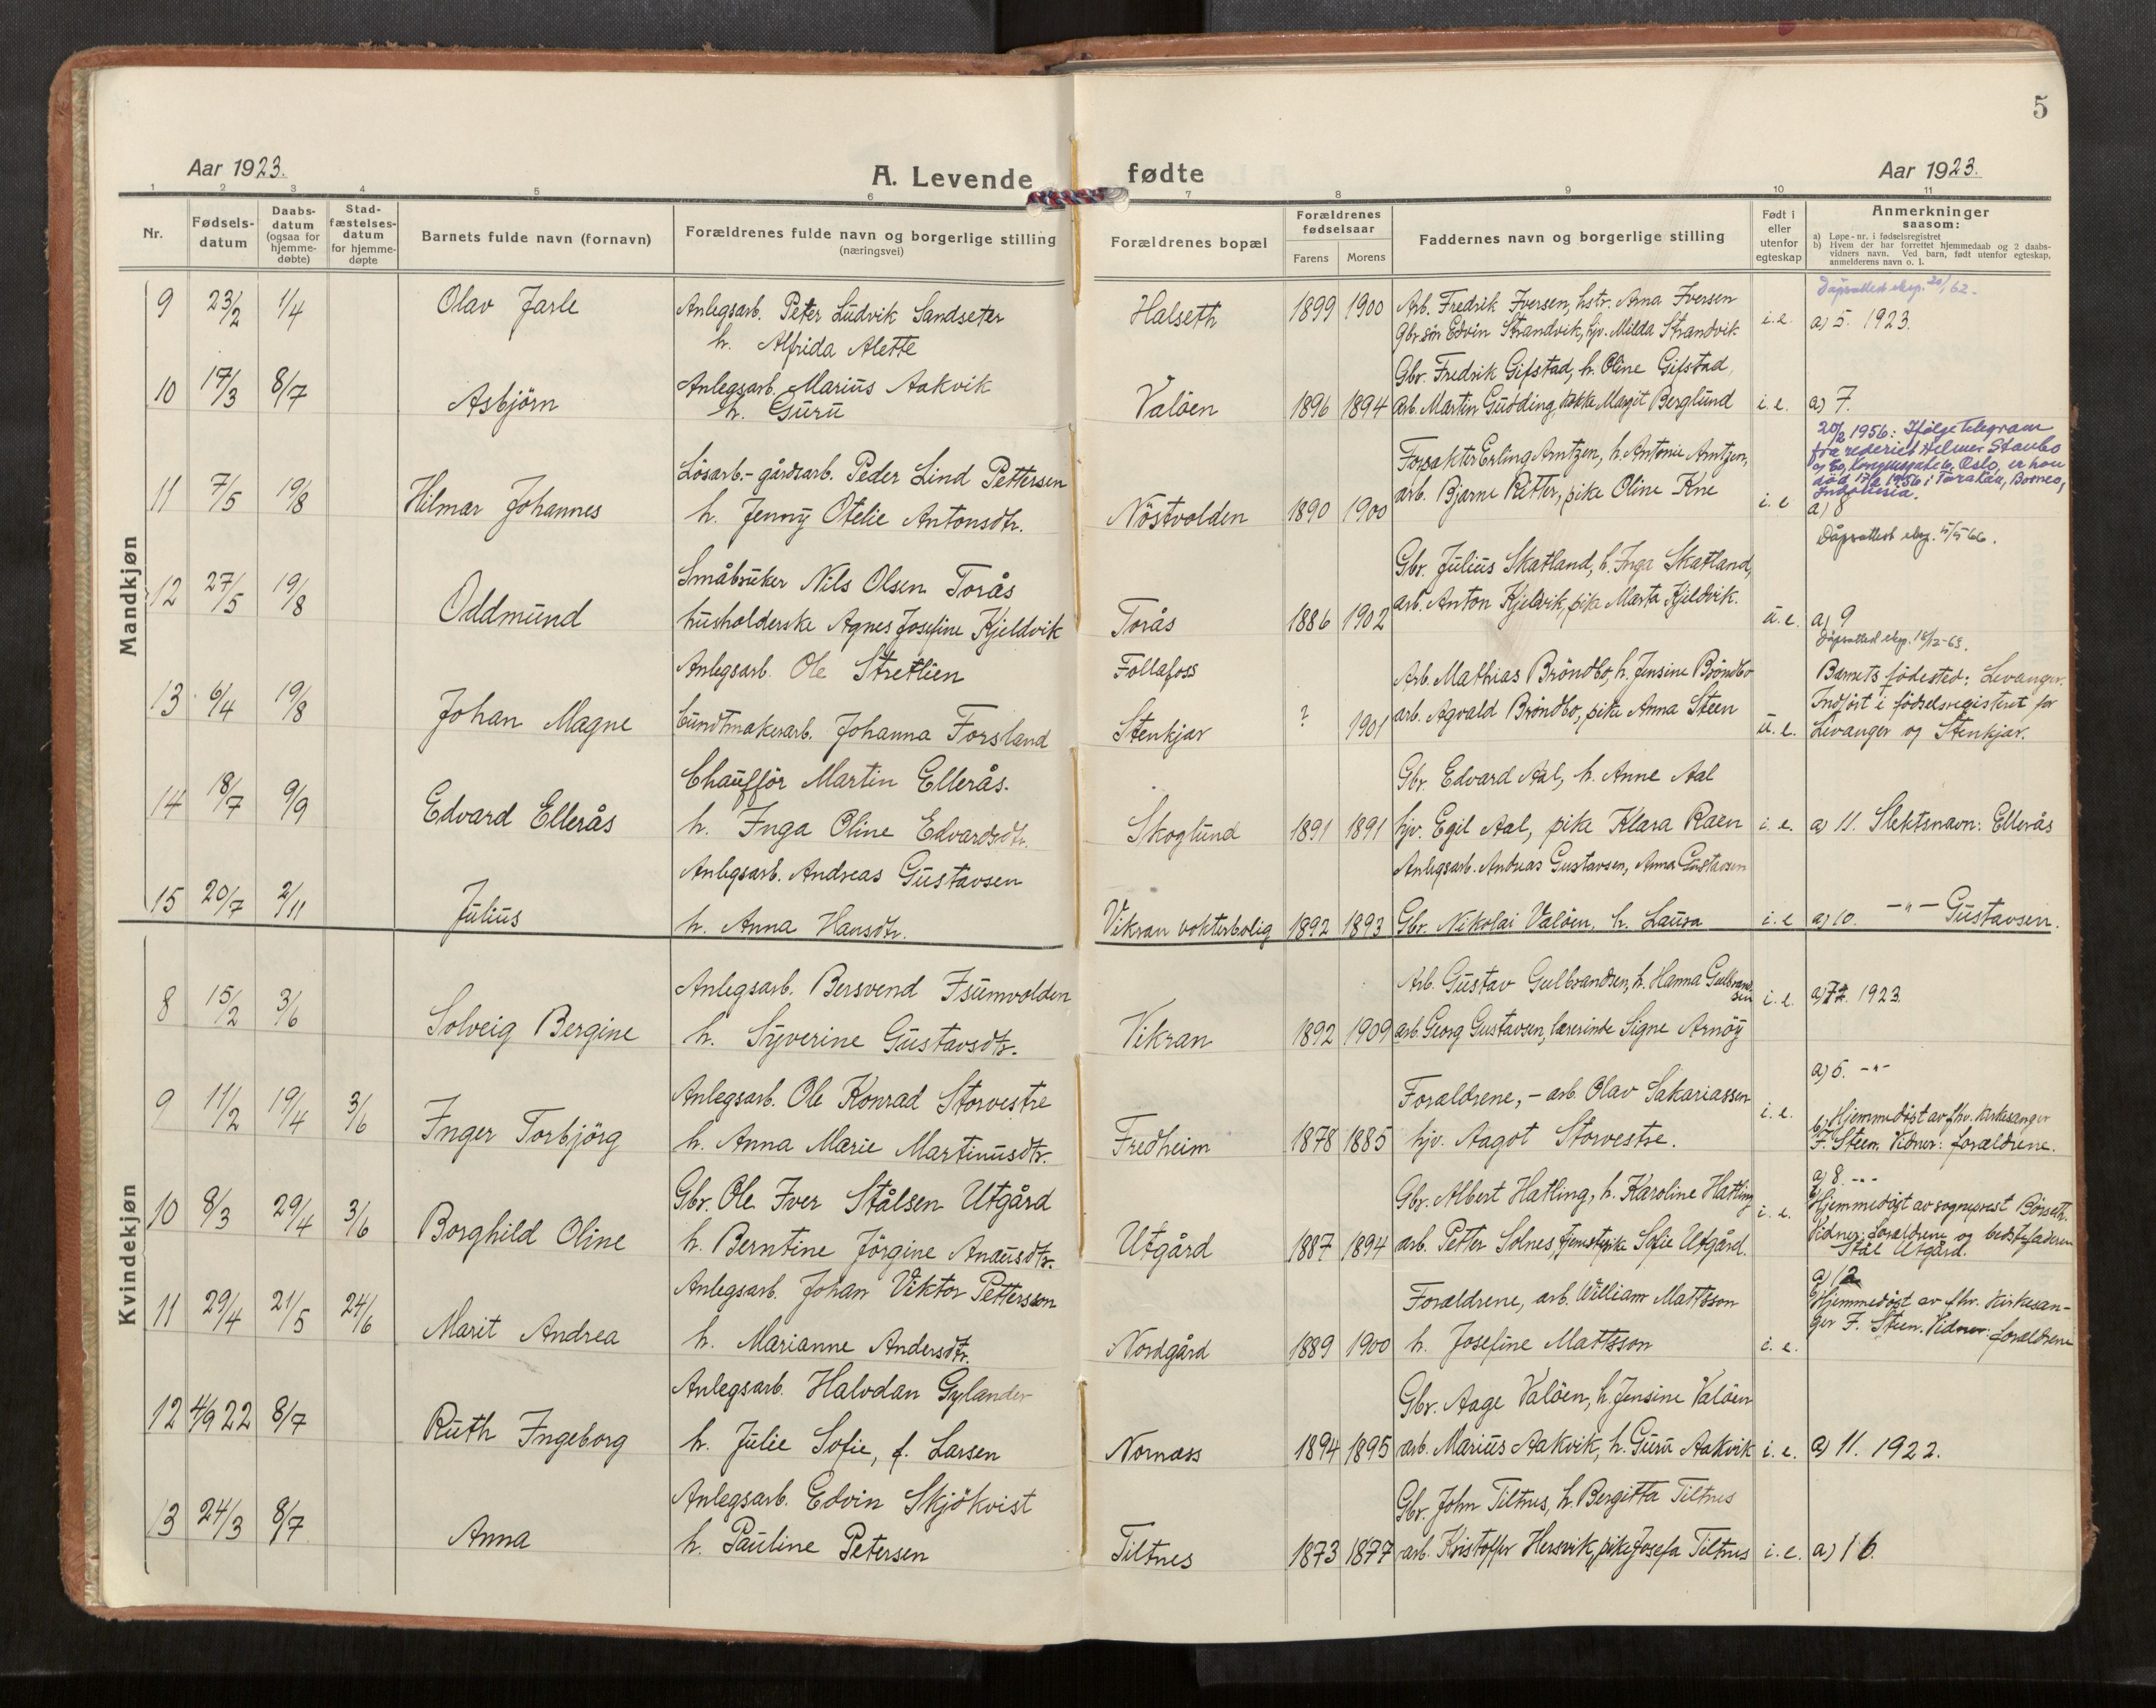 5
Aar 1923.
A. Levende fødte
Aar 1923.
1 2 3 4 5 6 7 8 9 10 11
Nr.
Fødsels-
datum
Daabs-
datum
(ogsaa for
hjemme-
døbte)
Stad-
fæstelses-
datum
for hjemme-
døpte
Barnets fulde navn (fornavn)
Forældrenes fulde navn og borgerlige stilling
(næringsvei)
Forældrenes bopæl
Forældrenes
fødselsaar
Farens
Morens
Faddernes navn og borgerlige stilling
Født i
eller
utenfor
egteskap
Anmerkninger
saasom:
a) Løpe-nr. i fødselsregistret
b) Hvem der har forrettet hjemmedaab og 2 daabs-
vidners navn. Ved barn, født utenfor egteskap,
anmelderens navn o. l.
Mandkjøn
9 23/2 1/4 Olav Jarle
Anlegsarb. Peter Ludvik Sandseter
h. Alfrida Alette
Halseth 1899 1900
Arb. Fredrik Iversen, hstr. Anna Iversen
Gbr. sön Edvin Strandvik, hjv. Milda Strandvik
i. e.
Dåpsattest eksp. /62.
a) 5. 1923.
10 17/3 8/7 Asbjörn
Anlegsarb. Marius Aakvik
h. Guru
Valöen 1896 1894
Gbr. Fredrik Gifstad, h. Oline Gifstad,
arb. Martin Gudding, kokke Magit Berglund
i. e.
a) 7.
11 7/5 19/8 Hilmar Johannes
Lösarb.- gårdsarb. Peder Lind Pettersen
h. Jenny Otelie Antonsdtr.
Nöstvolden 1890 1900
Forpakter Erling Arntzen, h. Antonie Arntzen,
arb. Bjarne Ritter, pike Oline Kne
i. e
20/2 1956: Ifølge telegram
fra rederiet Helmer Staubo
og Co, Kongensgate 6, Oslo, er han
död 17/2 1956 i Tarakan, Borneo,
Indonesia.
a) 8
Dåpsattest eksp. 5/5 66.
12 27/5 19/8 Oddmund
Småbruker Nils Olsen Torås
husholderske Agnes Josefine Kjeldvik
Torås 1886 1902
Gbr. Julius Skatland, h. Inga Skatland,
arb. Anton Kjeldvik, pike Marta Kjeldvik.
u. e.
a) 9
Dåpsattest eksp. 18/12-63.
13 6/4 19/8 Johan Magne
Anlegsarb. Ole Stretlien
bundtmakerarb. Johanna Forsland
Follafoss
Stenkjær ? 1901
Arb. Mathias Bröndbo, h. Jensine Bröndbo
arb. Agvald Bröndbo, pike Anna Steen
u. e.
Barnets fødested: Levanger.
Indført i fødselsregistret for
Levanger og Stenkjær.
14 18/7 9/9 Edvard Ellerås
Chaufför Martin Ellerås.
h. Inga Oline Edvardsdtr.
Skoglund 1891 1891
Gbr. Edvard Aal, h. Anne Aal
hjv. Egil Aal, pike Klara Raen
i. e.
a) 11. Slektsnavn: Ellerås
15 20/7 2/11 Julius
Anlegsarb. Andreas Gustavsen
h. Anna Hansdtr.
Vikran vokterbolig 1892 1893
Anlegsarb. Andreas Gustavsen, Anna Gustavsen
Gbr. Nikolai Valöen, h. Laura
i. e
a) 10. -"- Gustavsen.
Kvindekjøn
8 15/2 3/6 Solveig Bergine
Anlegsarb. Bersvend Isumvolden
h. Syverine Gustavsdtr.
Vikran 1892 1909
Arb. Gustav Gulbrandsen, h. Hanna Gulbrandsen
arb. Georg Gustavsen, lærerinde Signe Arnöy
i. e.
1923
9 11/2 19/4 3/6 Inger Torbjörg
Anlegsarb. Ole Konrad Storvestre
h. Anna Marie Martinusdtr.
Fredheim 1878 1885
Forældrene, - arb. Olav Sakariassen
hjv. Aagot Storvestre.
i. e.
a) 5. -"-
b) Hjemmedöpt av fhv. kirkesanger
F. Steen. Vidner: forældrene.
10 8/3 29/4 3/6 Borghild Oline
Gbr. Ole Iver Stålsen Utgård
h. Berntine Jörgine Anæusdtr.
Utgård 1887 1894
Gbr. Albert Hatling, h. Karoline Hatling
arb. Petter Solnes, tjenstepike Sofie Utgård.
i. e.
a) 8. -"-
b) Hjemmedöpt av sogneprest Börseth.
Vidner: Forældrene og bedstefaderen
Stål Utgård.
11 29/4 21/5 24/6 Marit Andrea
Anlegsarb. Johan Viktor Pettersson
h. Marianne Andersdtr.
Nordgård 1889 1900
Forældrene, arb. William Mattsson
h. Josefine Mattsson
i. e.
a) 12
b) Hjemmedöpt av fhv. kirkesan-
ger F. Steen. Vidner: forældrene
12 4/9 22 8/7 Ruth Ingeborg
Anlegsarb. Halvdan Gylander
h. Julie Sofie, f. Larsen
Nornæss 1894 1895
Gbr. Aage Valöen, h. Jensine Valöen
arb. Marius Aakvik, h. Guru Aakvik
i. e.
a) 11. 1922.
13 24/3 8/7 Anna
Anlegsarb. Edvin Skjökvist
h. Pauline Petersen
Tiltnes 1873 1877
Gbr. John Tiltnes, h. Bergitta Tiltnes
arb. Kristoffer Hersvik, pike Josefa Tiltnes
i. e.
a) 16.